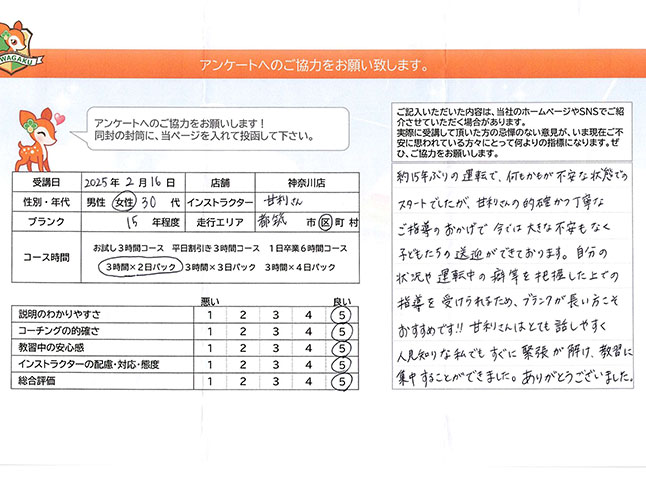 WAGAKU
アンケートへのご協力をお願い致します。
アンケートへのご協力をお願いします！
同封の封筒に、当ページを入れて投函して下さい。
受講日 2025年 2月 16日 店舗 神奈川店
性別・年代 男性 女性 30 代 インストラクター 甘利さん
ブランク 15 年程度 走行エリア 都筑 市 区 町 村
コース時間
お試し3時間コース 平日割引き3時間コース 1日卒業6時間コース
3時間×2日パック 3時間×3日パック 3時間×4日パック
悪い 良い
説明のわかりやすさ 1 2 3 4 5
コーチングの的確さ 1 2 3 4 5
教習中の安心感 1 2 3 4 5
インストラクターの配慮・対応・態度 1 2 3 4 5
総合評価 1 2 3 4 5
ご記入いただいた内容は、当社のホームページやSNSでご紹
介させていただく場合があります。
実際に受講して頂いた方の忌憚のない意見が、いま現在ご不
安に思われている方々にとって何よりの指標になります。ぜ
ひ、ご協力をお願いします。
約15年ぶりの運転で、何もかもが不安な状態での
スタートでしたが、甘利さんの的確かつ丁寧な
ご指導のおかげで今では大きな不安もなく
子どもたちの送迎ができております。自分の
状況や運転中の癖等を把握した上での
指導を受けられるため、ブランクが長い方こそ
おすすめです!! 甘利さんはとても話しやすく
人見知りな私でもすぐに緊張が解け、教習に
集中することができました。ありがとうございました。